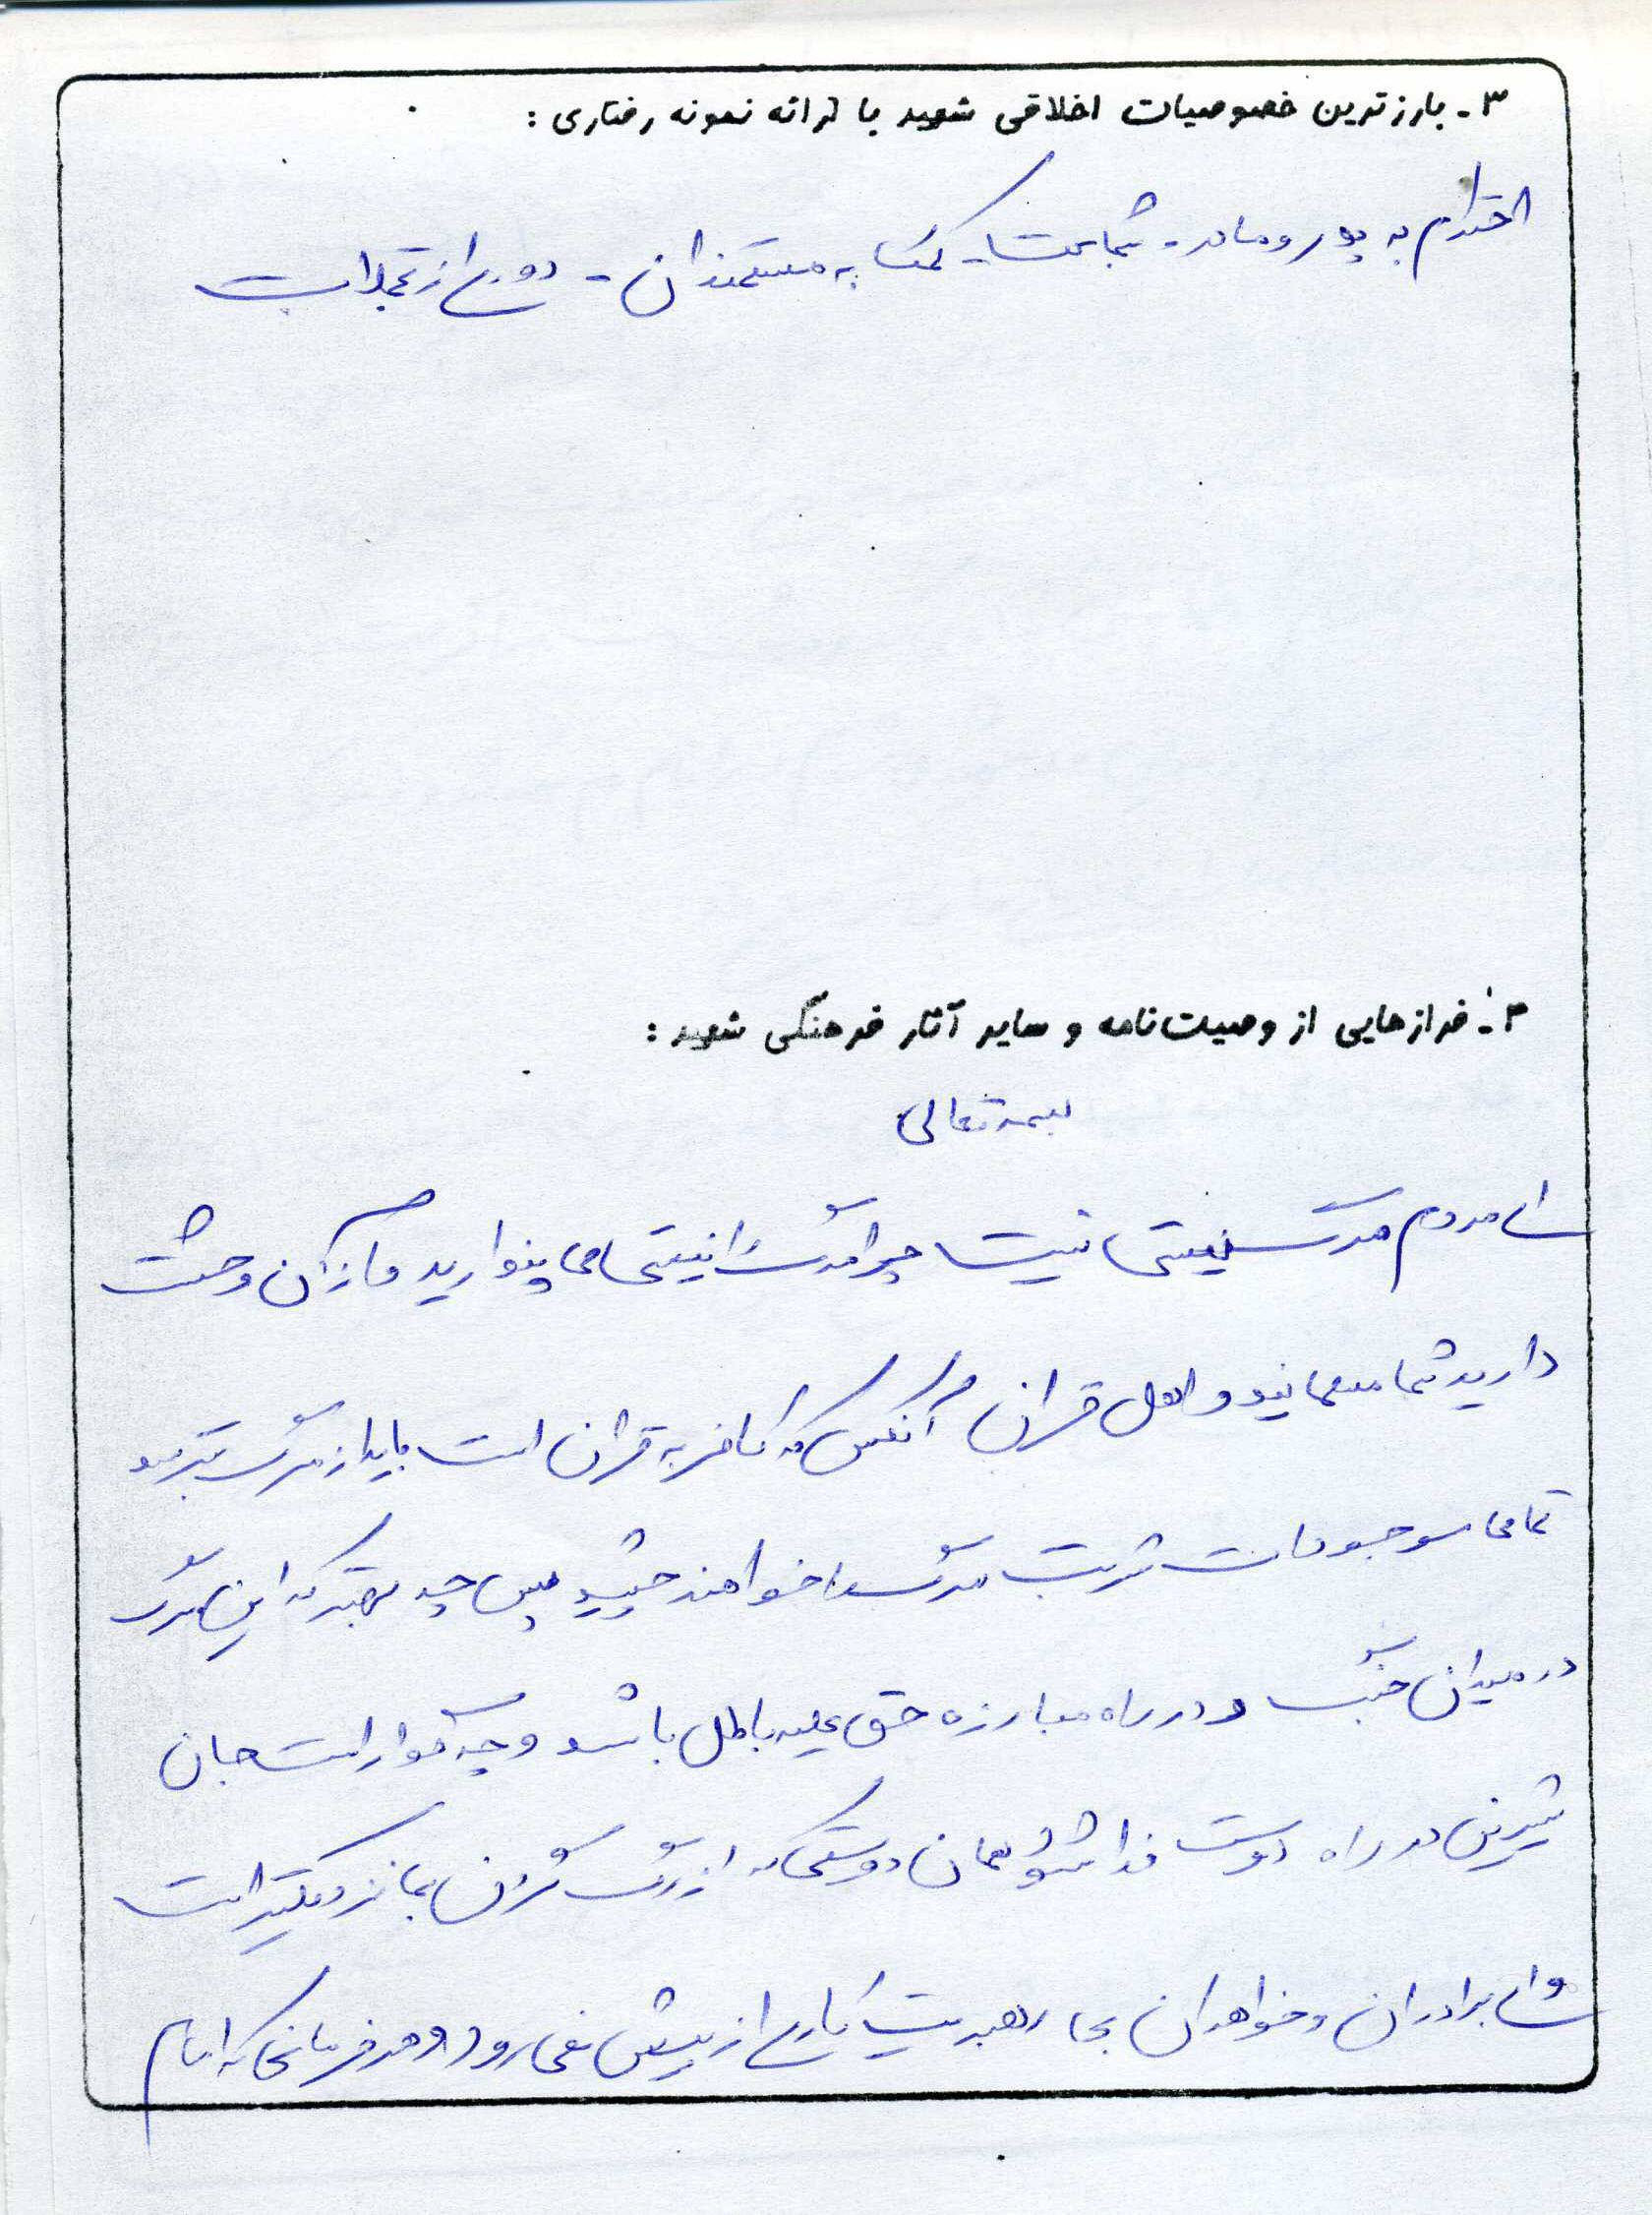 ۳- بارزترین خصوصیات اخلاقی شهید با ارائه نمونه رفتاری :
احترام به پدر و مادر - شجاعت - کمک به مستمندان - دوری از تجملات
۴- فرازهایی از وصیت‌نامه و سایر آثار فرهنگی شهید :
بسمه تعالی
ای مردم مرگ نیستی نیست چرا مرگ را نیستی می پندارید و از آن وحشت
دارید شما مسلمانید و اهل قرآن آنکس که کافر به قرآن است باید از مرگ بترسد
تمامی موجودات شربت مرگ را خواهند چشید پس چه بهتر که این مرگ
در میدان جنگ و در راه مبارزه حق علیه باطل باشد و چه گوارا است جان
شیرین در راه دوست فدا شود همان دوستی که از رگ گردن بما نزدیکتر است
و ای برادران و خواهران بی رهبریت کاری از پیش نمی رود و هر فرمانی که امام